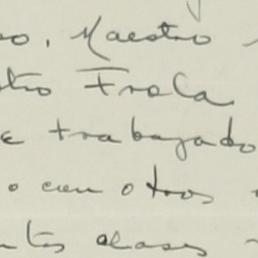 o. Maestro
tro Frola
e trabajado
o con otros
ntas clases